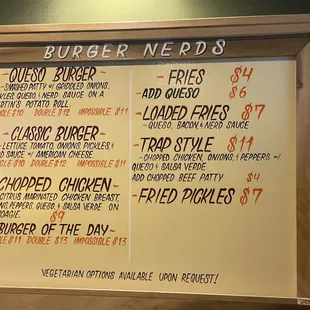 BURGER NERDS
-QUESO BURGER-
-SMASHED PATTY W/ GRIDDLED ONIONS,
QUESO, & NERD SAUCE ON A
POTATO ROLL.
$10 DOUBLE $12 IMPOSSIBLE $11
-CLASSIC BURGER-
-LETTUCE, TOMATO, ONIONS, PICKLES, &
SAUCE W/ AMERICAN CHEESE.
$10 DOUBLE $12 IMPOSSIBLE $11
CHOPPED CHICKEN-
CITRUS MARINATED CHICKEN BREAST,
PEPPERS, QUESO, & SALSA VERDE ON
$9
BURGER OF THE DAY-
$11 DOUBLE $13 IMPOSSIBLE $13
-FRIES $4
-ADD QUESO $6
-LOADED FRIES $7
-QUESO, BACON, & NERD SAUCE
-TRAP STYLE $11
-CHOPPED CHICKEN, ONIONS, & PEPPERS W/
QUESO & SALSA VERDE
ADD CHOPPED BEEF PATTY $4
-FRIED PICKLES $7
VEGETARIAN OPTIONS AVAILABLE UPON REQUEST!